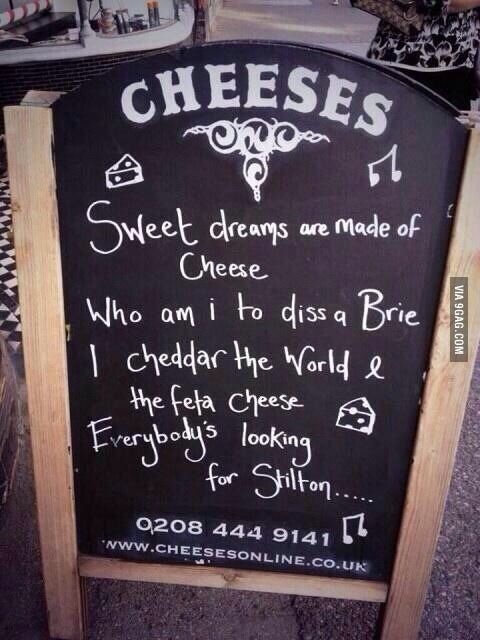 CHEESES
Sweet dreams are made of
Cheese
Who am i to diss a Brie
I cheddar the World &
the feta cheese
Everybody's looking
for Stilton.....
0208 444 9141
WWW.CHEESESONLINE.CO.UK
VIA 9GAG.COM